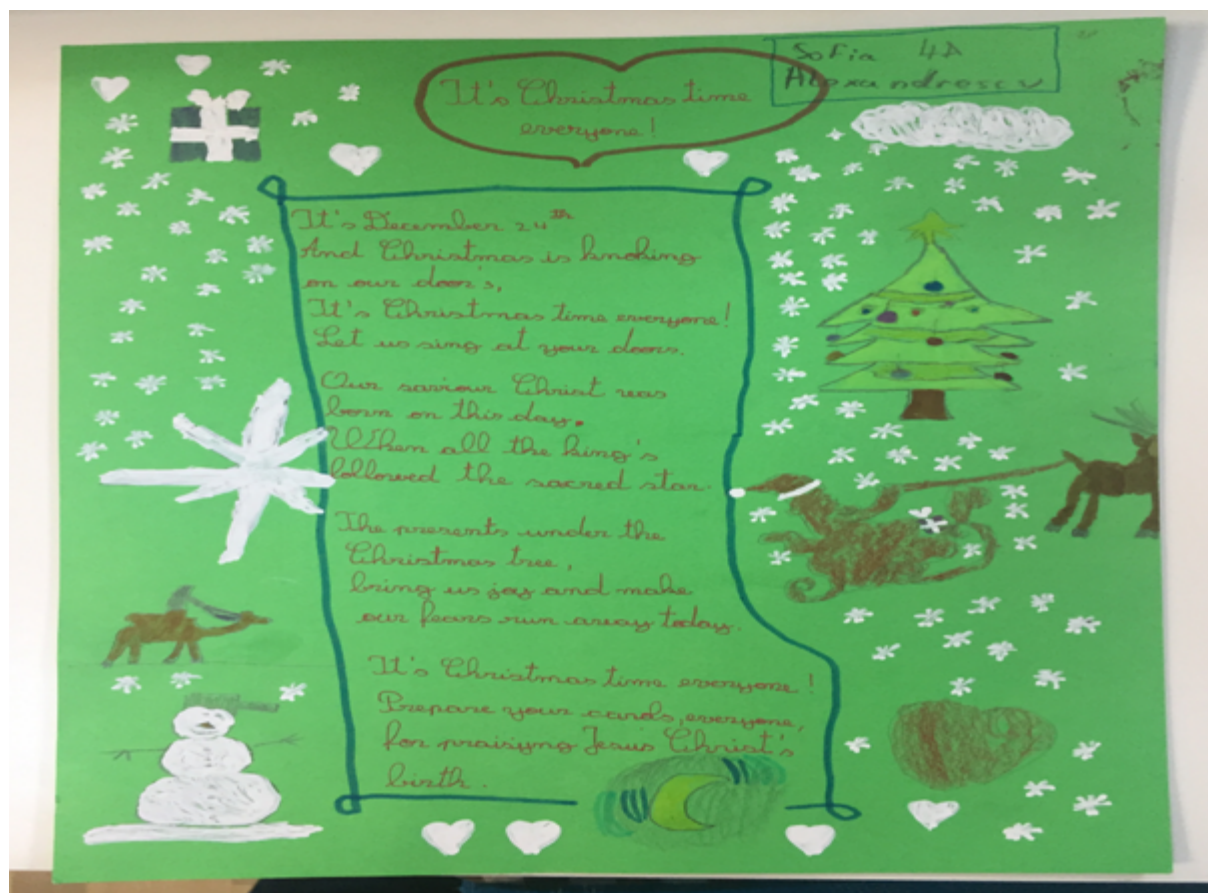 It's Christmas time
everyone!
Sofia 4A
Alexandrescu
It's December 24th
And Christmas is knoking
on our door's,
It's Christmas time everyone!
Let us sing at your doors.
Our saviour Christ was
born on this day.
When all the king's
followed the sacred star.
The presents under the
Christmas tree,
bring us joy and make
our fears run away today.
It's Christmas time everyone!
Prepare your cards, everyone,
for praisiyng Jesus Christ's
birth.